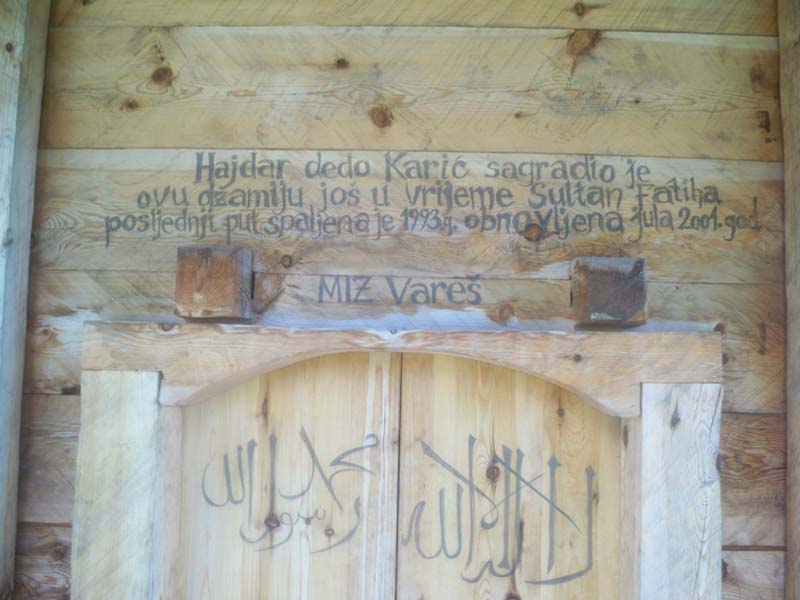 Hajdar dedo Karić sagradio je
ovu džamiju još u vrijeme Sultan Fatiha
posljednji put spaljena je 1993.g. obnovljena jula 2001. god.
MIZ Vareš
لا اله الا الله
محمد رسول الله